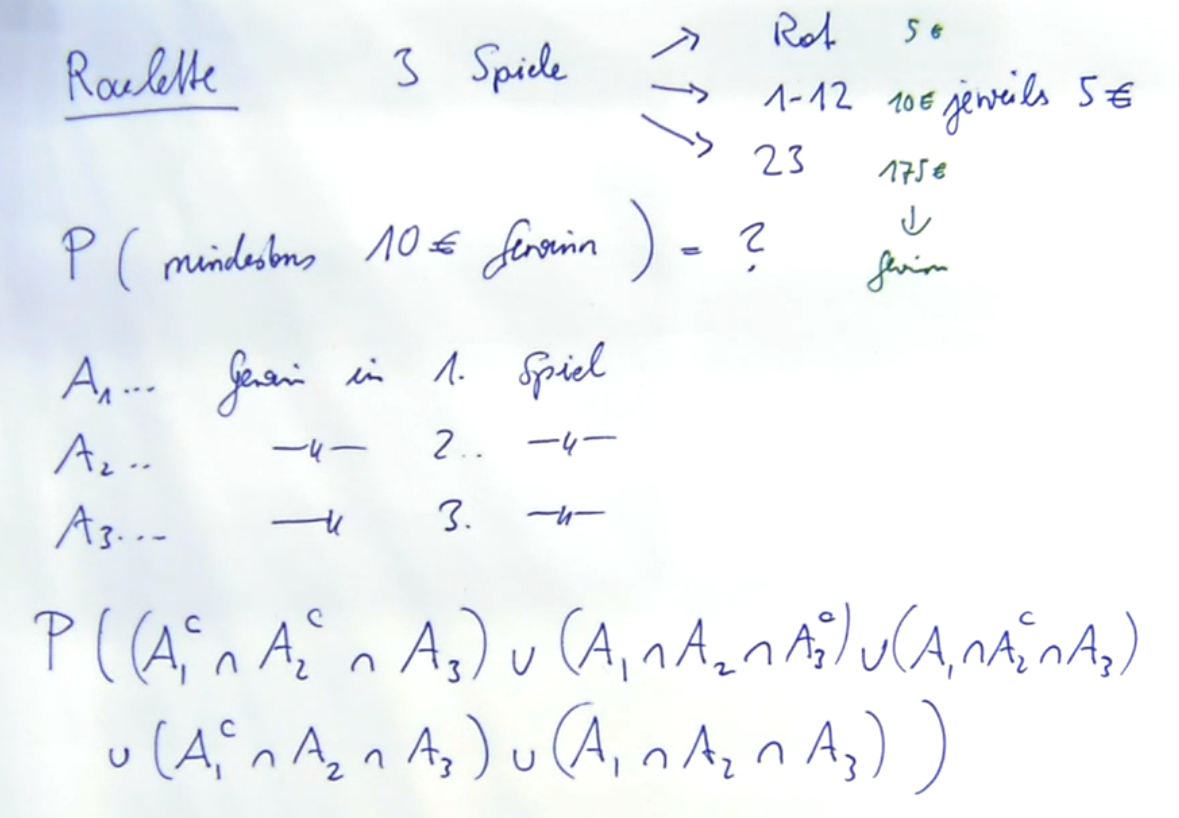 Roulette 3 Spiele → Rot 5€
→ 1-12 10€ jeweils 5€
→ 23 175€
↓
P( mindestens 10€ Gewinn ) = ? Gewinn
A₁... Gewinn in 1. Spiel
A₂.. —〃— 2.. —〃—
A₃... —〃— 3. —〃—
P((A₁ᶜ ∩ A₂ᶜ ∩ A₃) ∪ (A₁ ∩ A₂ ∩ A₃ᶜ) ∪ (A₁ ∩ A₂ᶜ ∩ A₃)
∪ (A₁ᶜ ∩ A₂ ∩ A₃) ∪ (A₁ ∩ A₂ ∩ A₃))